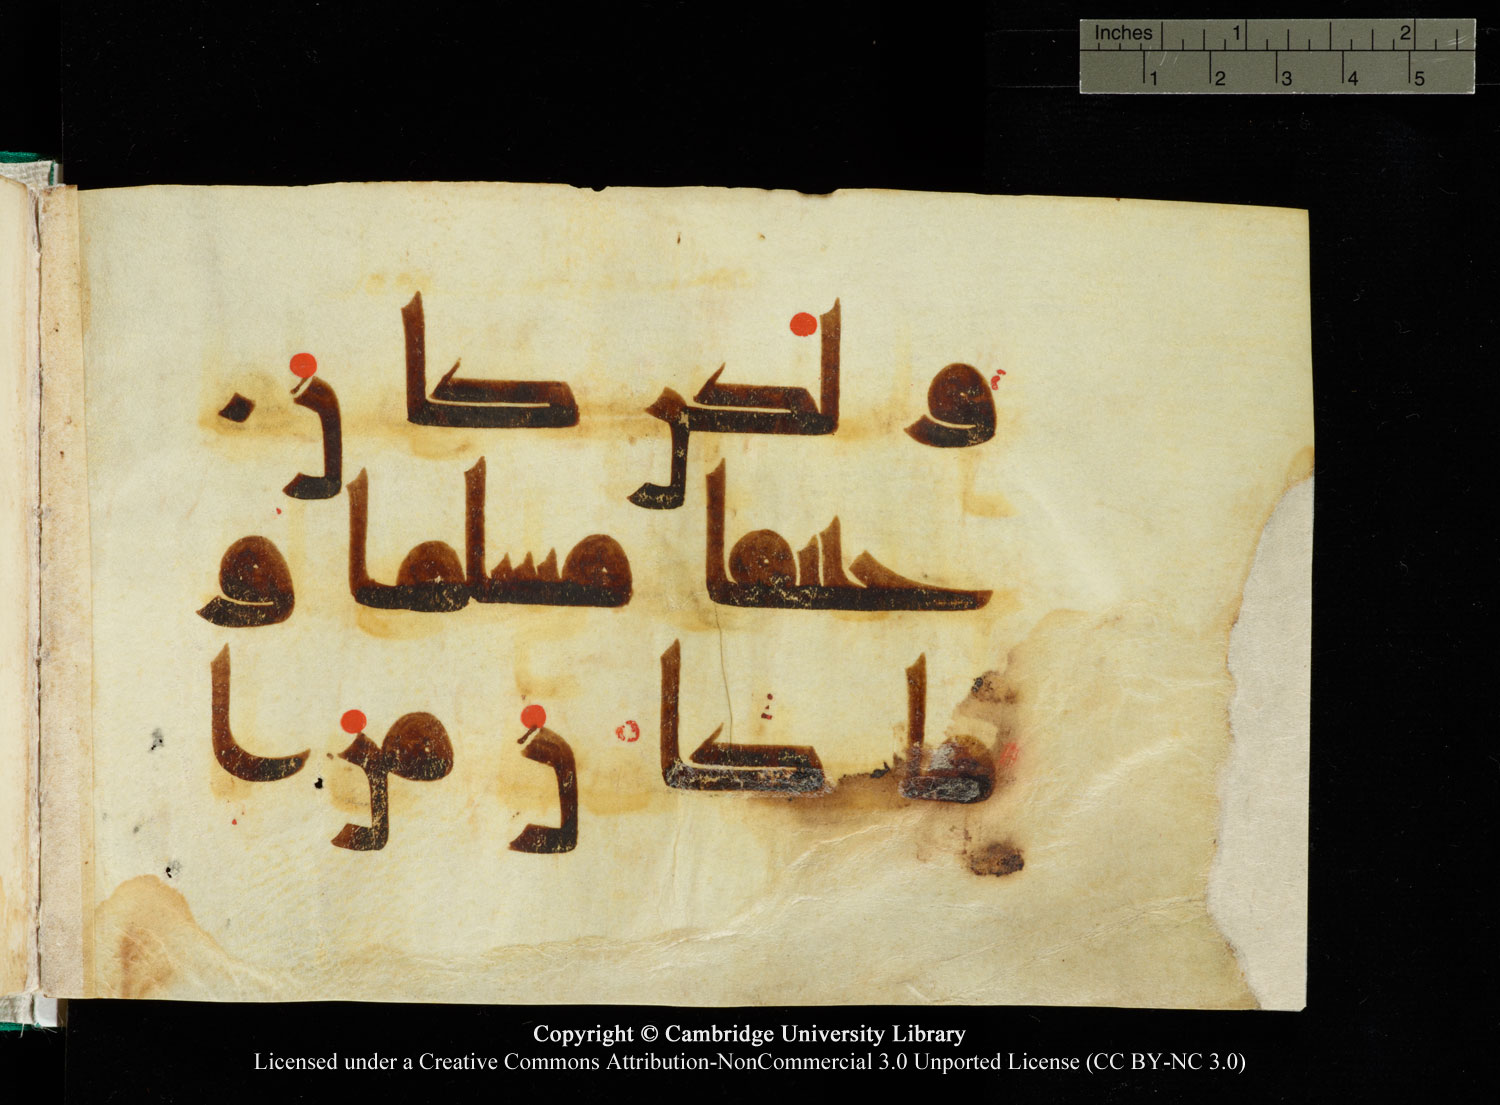 Inches 1 2
1 2 3 4 5
ولكن كان
حنيفا مسلما و
ما كان من ا
Copyright © Cambridge University Library
Licensed under a Creative Commons Attribution-NonCommercial 3.0 Unported License (CC BY-NC 3.0)